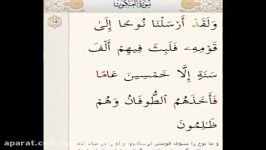 سورة العنكبوت
وَلَقَدْ أَرْسَلْنَا نُوحًا إِلَىٰ
قَوْمِهِ فَلَبِثَ فِيهِمْ أَلْفَ
سَنَةٍ إِلَّا خَمْسِينَ عَامًا
فَأَخَذَهُمُ الطُّوفَانُ وَهُمْ
ظَالِمُونَ
و ما نوح را بسوی قومش
aparat.com/